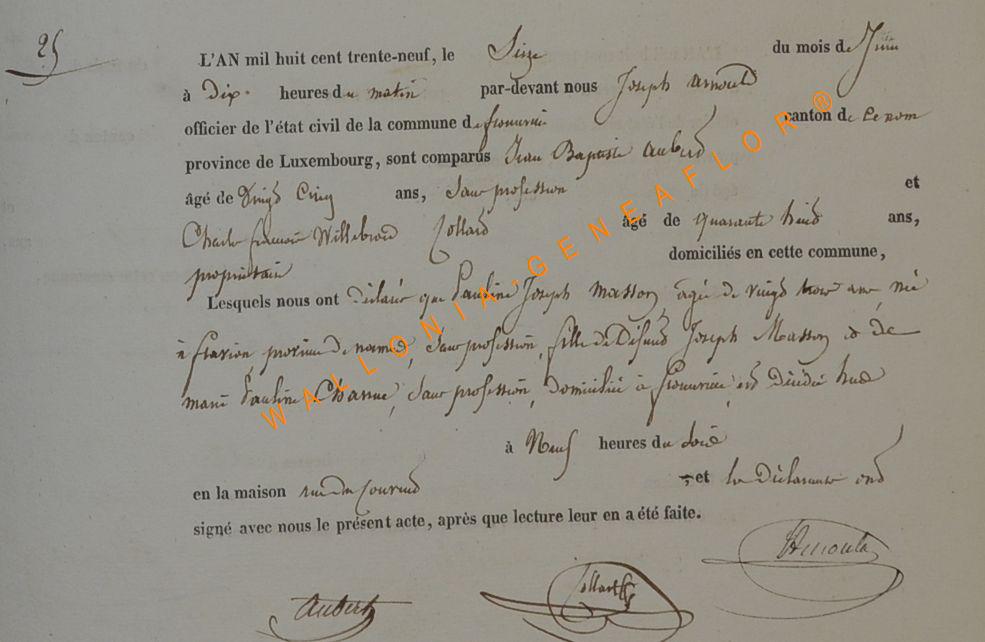 25
L'AN mil huit cent trente-neuf, le Seize du mois de Juin
à Dix heures du matin par-devant nous Joseph Arnould
officier de l'état civil de la commune de canton de
province de Luxembourg, sont comparus Jean Baptiste Aubert
âgé de Vingt Cinq ans, Sans profession et
Charles Willebrord Collard âgé de quarante huit ans,
propriétaire domiciliés en cette commune,
Lesquels nous ont déclaré que Pauline Joseph Masson, agée de vingt trois ans, née
à flavion, province de namur, Sans profession, fille de Défunt Joseph Masson et de
marie Pauline Sans profession, Domiciliée à est Décédée
à Neuf heures du Soir
en la maison rue du Couvent et les Déclarants ont
signé avec nous le présent acte, après que lecture leur en a été faite.
Aubert Collard Arnould
WALLONIA-GENEAFLOR®